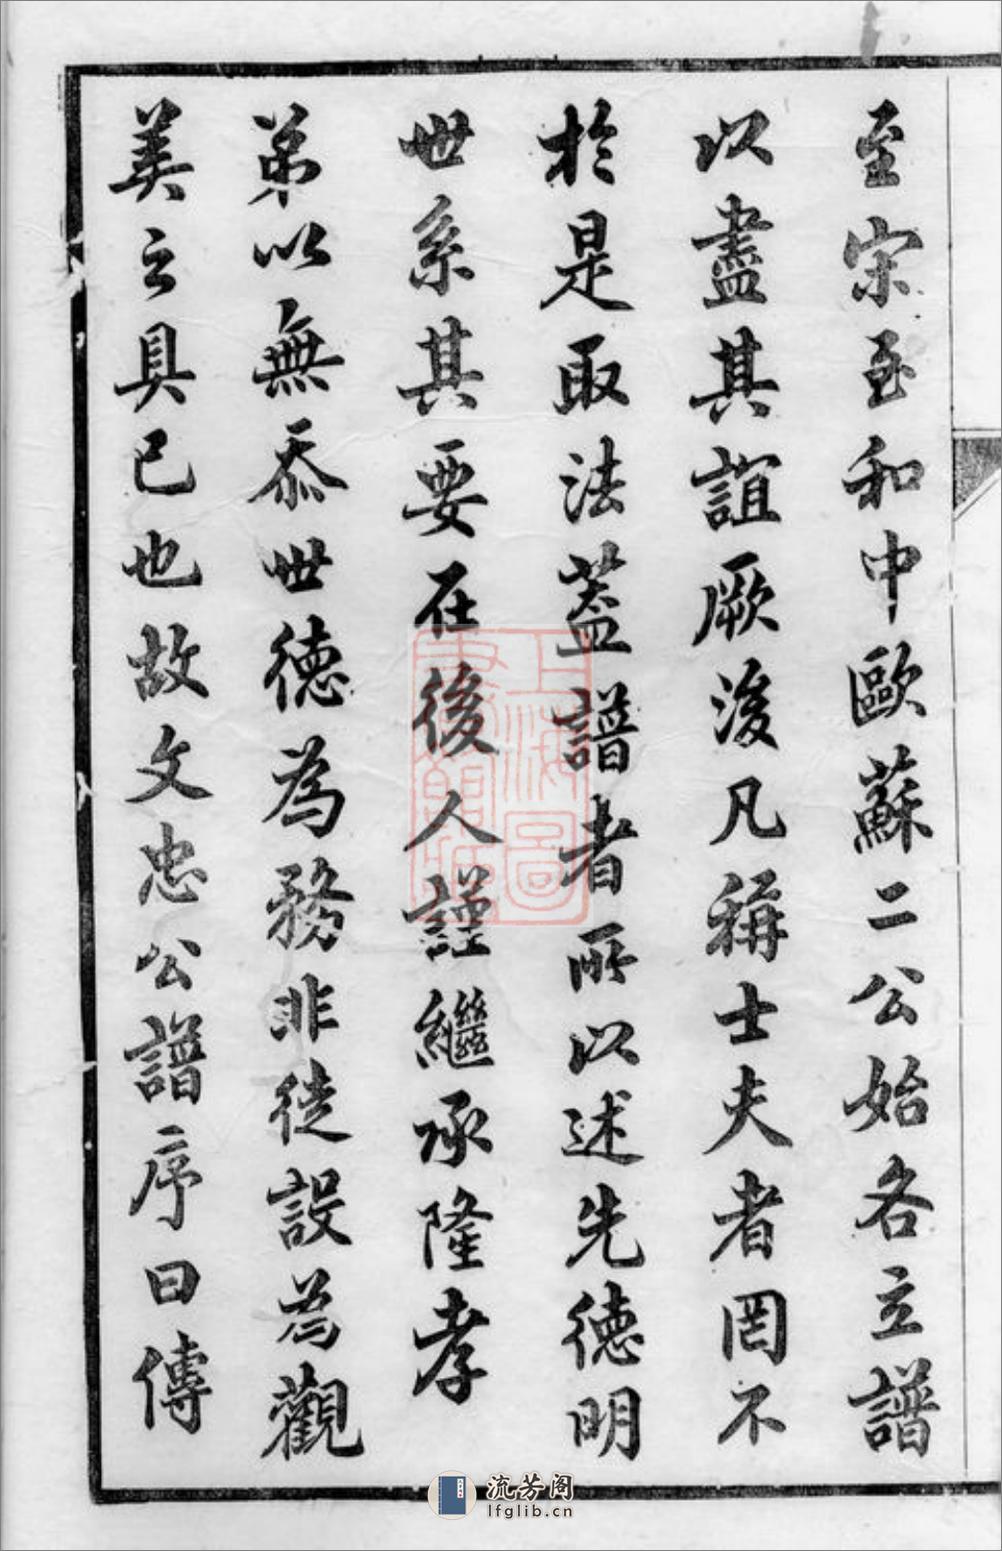 至宋至和中歐蘇二公始各立譜
以盡其誼厥後凡稱士夫者罔不
於是取法蓋譜者所以述先德明
世系其要在後人謹繼承隆孝
弟以無忝世德為務非徒設為觀
美之具已也故文忠公譜序曰傳
上海圖
書館藏
流芳阁
lfglib.cn